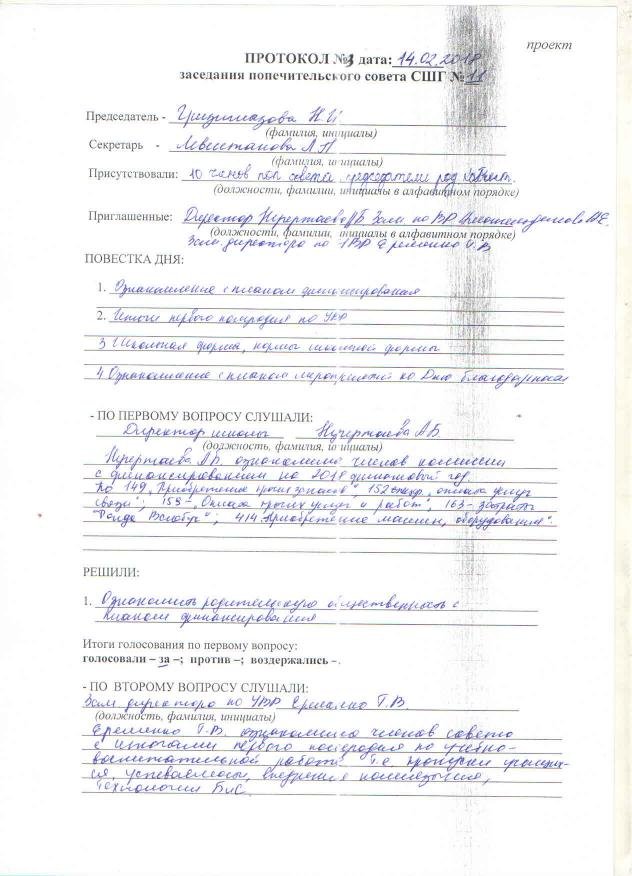 проект
ПРОТОКОЛ №3 дата: 14.02.2018
заседания попечительского совета СШГ № 11
Председатель - Н.И
(фамилия, инициалы)
Секретарь - Левестанова Л.П
(фамилия, инициалы)
Присутствовали: 10 членов поп совета, председатели род
(должности, фамилии, инициалы в алфавитном порядке)
Приглашенные: Директор Зам. по ВР
(должности, фамилии, инициалы в алфавитном порядке)
Зам. директора по УВР Еременко
ПОВЕСТКА ДНЯ:
1. Ознакомление с планом финансирования
2. Итоги первого полугодия по УВР
3 Школьная форма, нормы школьной формы
4. Ознакомление с планом мероприятий ко Дню благодарности
- ПО ПЕРВОМУ ВОПРОСУ СЛУШАЛИ:
Директор школы А.Б.
(должность, фамилия, инициалы)
ознакомила членов комиссии
с финансированием на 2018 финансовый год.
По 149 „Приобретение прочих запасов", 152 „оплата услуг
связи"; 159- „Оплата прочих услуг и работ", 163- затраты
Фонда Всеобуч"; 414 Приобретение машин, оборудования".
РЕШИЛИ:
1. Ознакомить родительскую общественность с
планом финансирования
Итоги голосования по первому вопросу:
голосовали – за –; против –; воздержались - .
- ПО ВТОРОМУ ВОПРОСУ СЛУШАЛИ:
Зам директора по УВР Еременко Т.В.
(должность, фамилия, инициалы)
Еременко Т.В. ознакомила членов совета
с итогами первого полугодия по учебно-
воспитательной работе. Т.е. пропуски учащих-
ся, успеваемость, внедрение полиязычия,
технологии БиС.